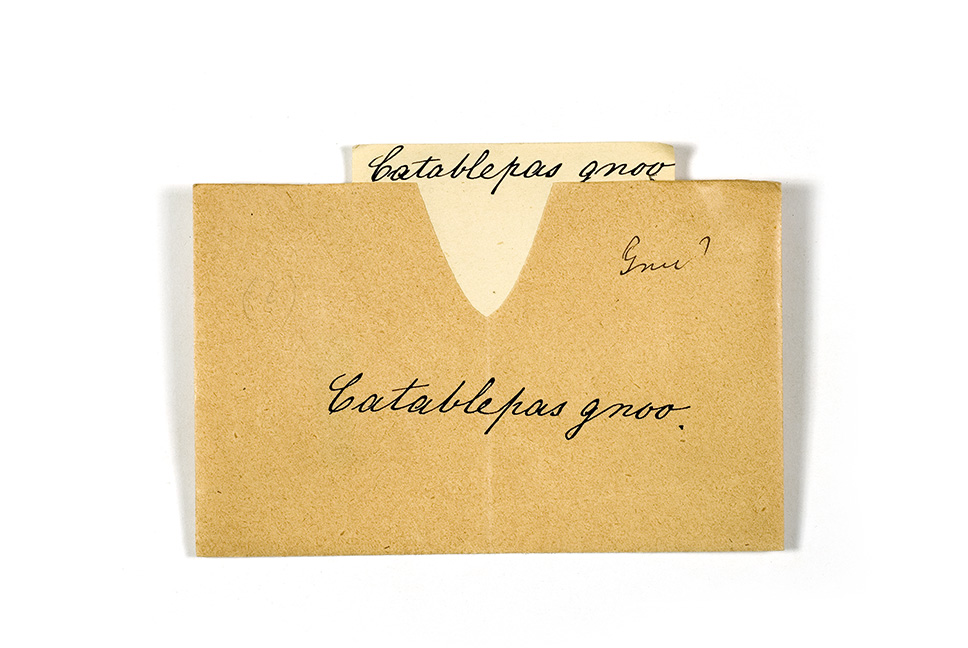 Catablepas gnoo
Gnu?
Catablepas gnoo.